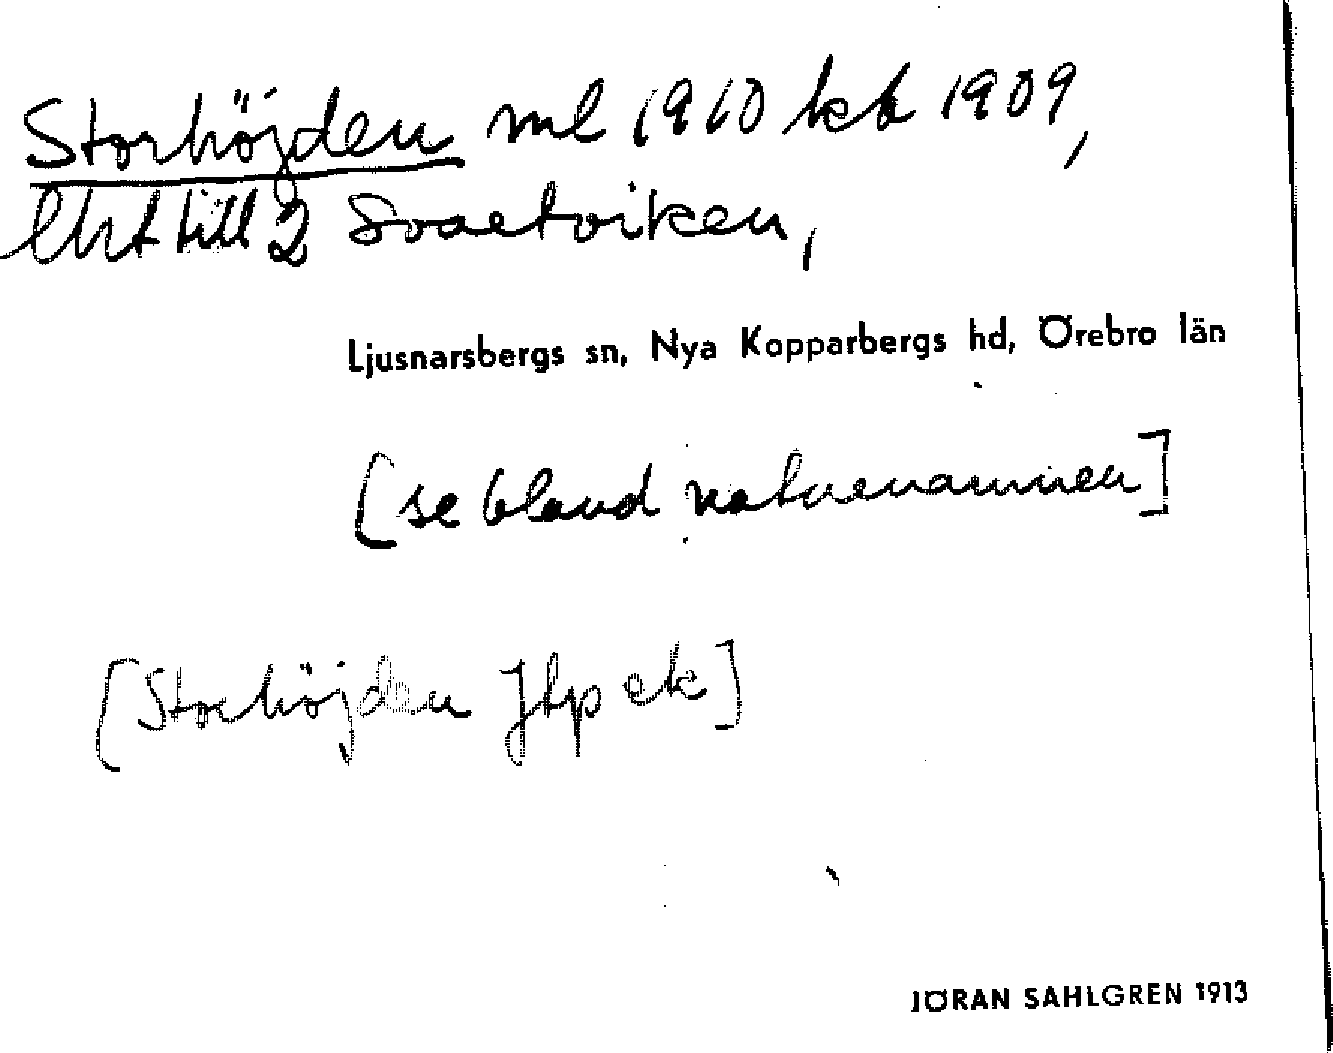 Storhöjden ml 1910 kb 1909,
lht till 2 Svartviken,
Ljusnarsbergs sn, Nya Kopparbergs hd, Örebro län
[se bland naturnamnen]
[Storhöjden Jtp ek]
JÖRAN SAHLGREN 1913